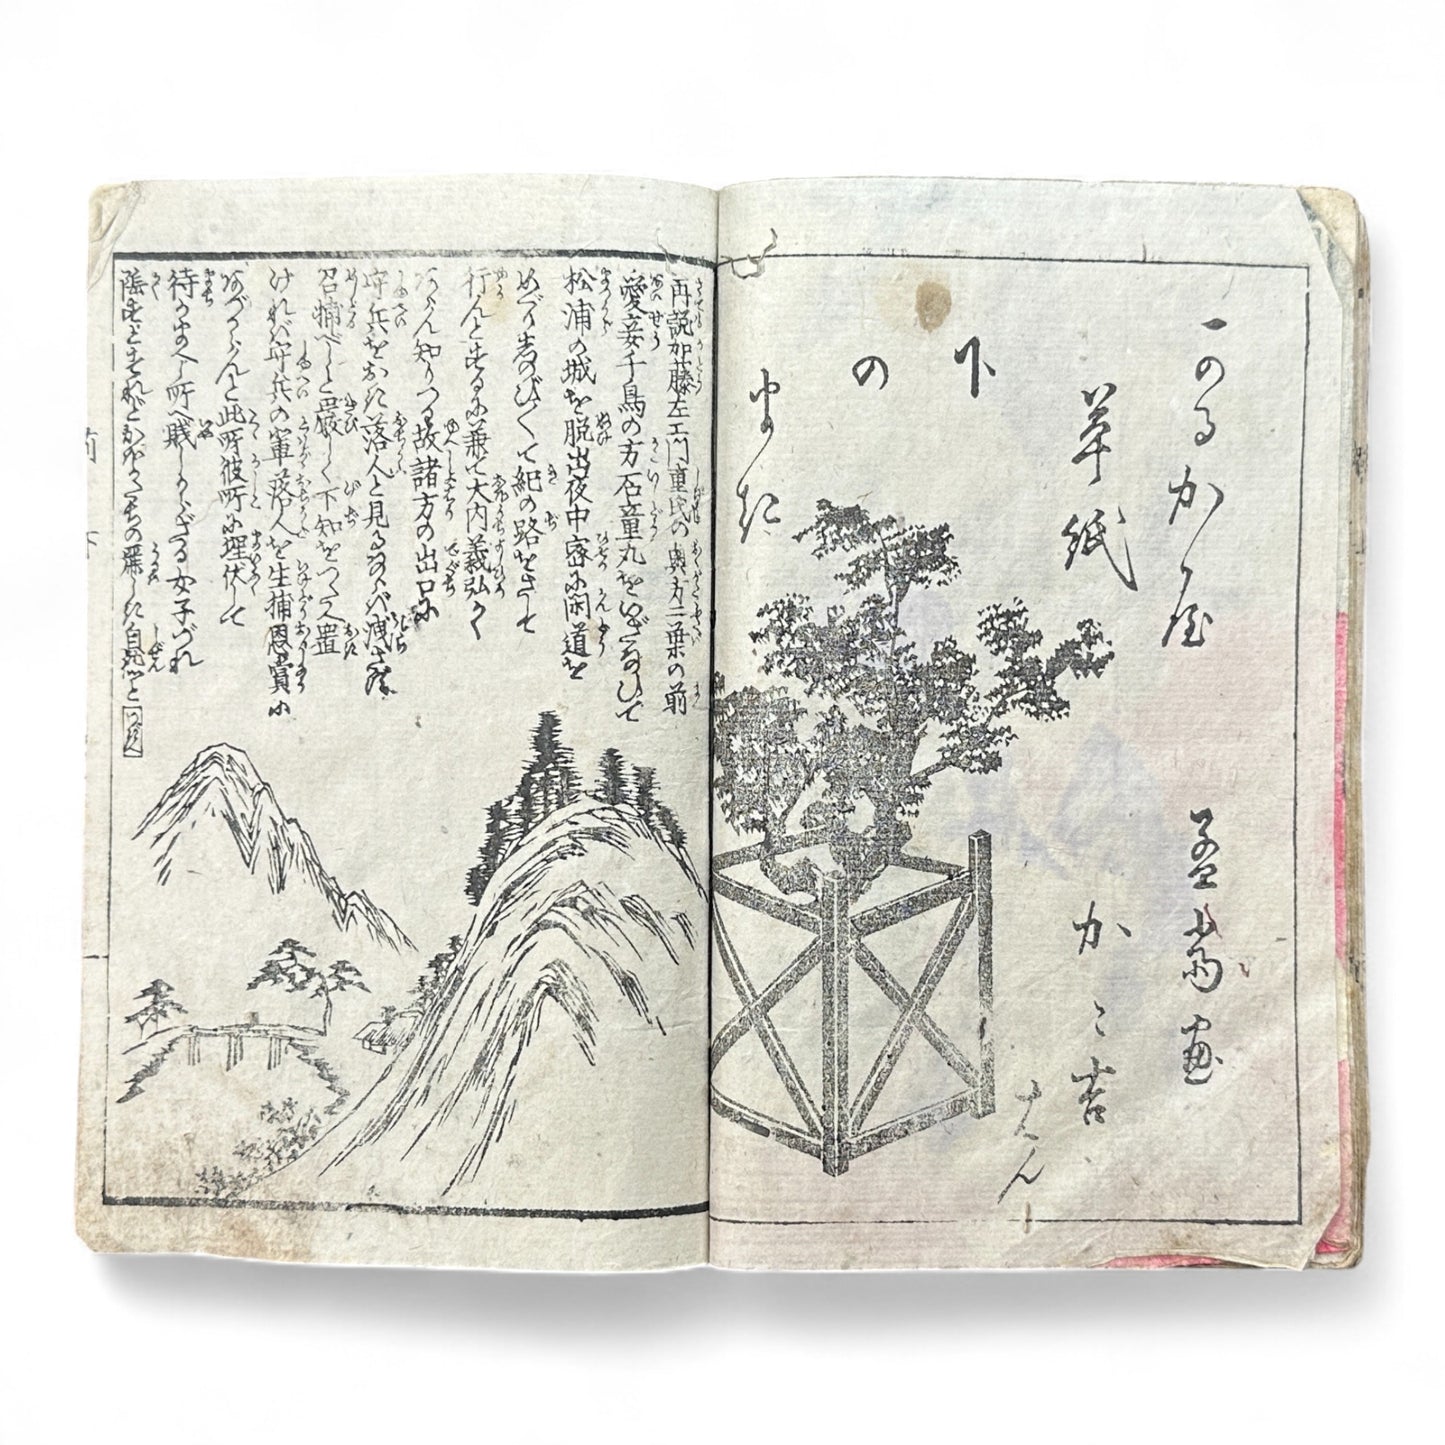 かるかや
草紙
下
の
まき
孟斎画
かゝ吉
はん
再説加藤左エ門重氏の奥方二葉の前
愛妾千鳥の方石童丸をいざなひて
松浦の城を脱出夜中密に閑道を
めぐりしのび〳〵て紀の路をさして
行んとするに兼て大内義弘かく
あらん知りつる故諸方の出口に
守兵をおき落人と見るならバ洩さず
召捕べしと厳しく下知をつたへ置
けれバ守兵の軍落人を生捕恩賞に
あづからんと此所彼所に埋伏して
待かまへし所へ賤しからざる女子づれ
自然と つぎへ